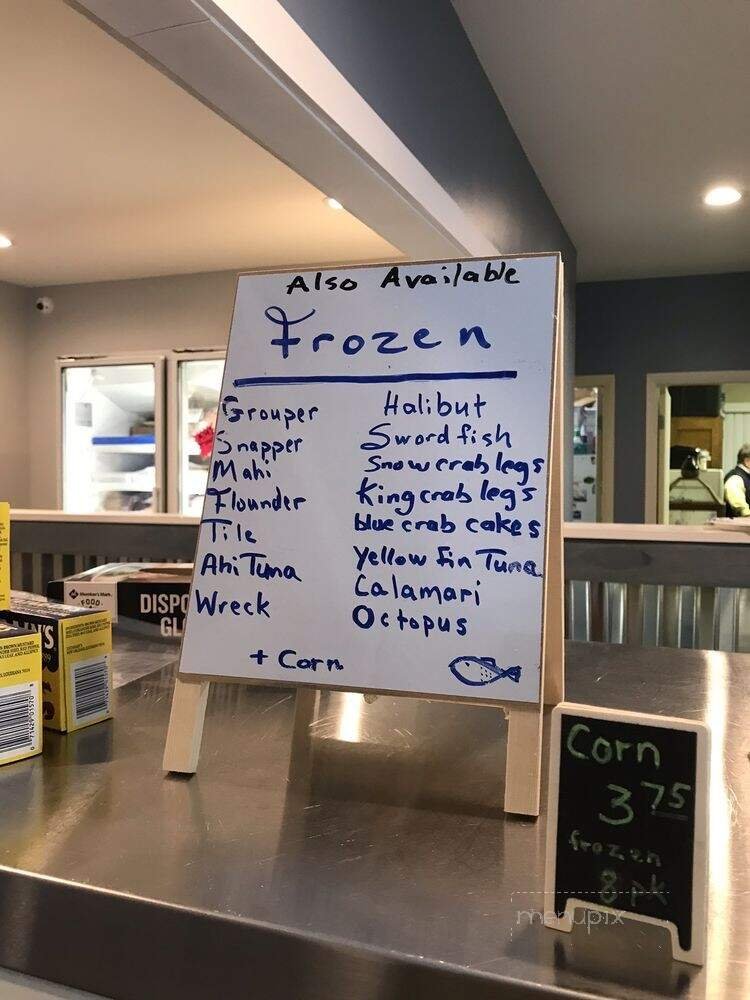 Also Available
Frozen
Grouper
Snapper
Mahi
Flounder
Tile
Ahi Tuna
Wreck
Halibut
Sword fish
Snow crab legs
King crab legs
blue crab cakes
Yellow fin Tuna
Calamari
Octopus
+ Corn
Corn
3 75
frozen
8 pk
Member's Mark
FOOD
DISPO
GL
N'S
menupix